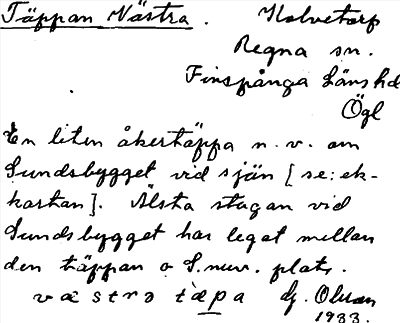 Täppan Västra. Holvetorp
Regna sn.
Finspånga läns hd
Ögl
En liten åkertäppa n.v. om
Sundsbygget vid sjön [se: ek-
kartan]. Älsta stugan vid
Sundsbygget har legat mellan
den täppan o S. nuv. plats.
västrə tæpa Hj. Olsson
1933.